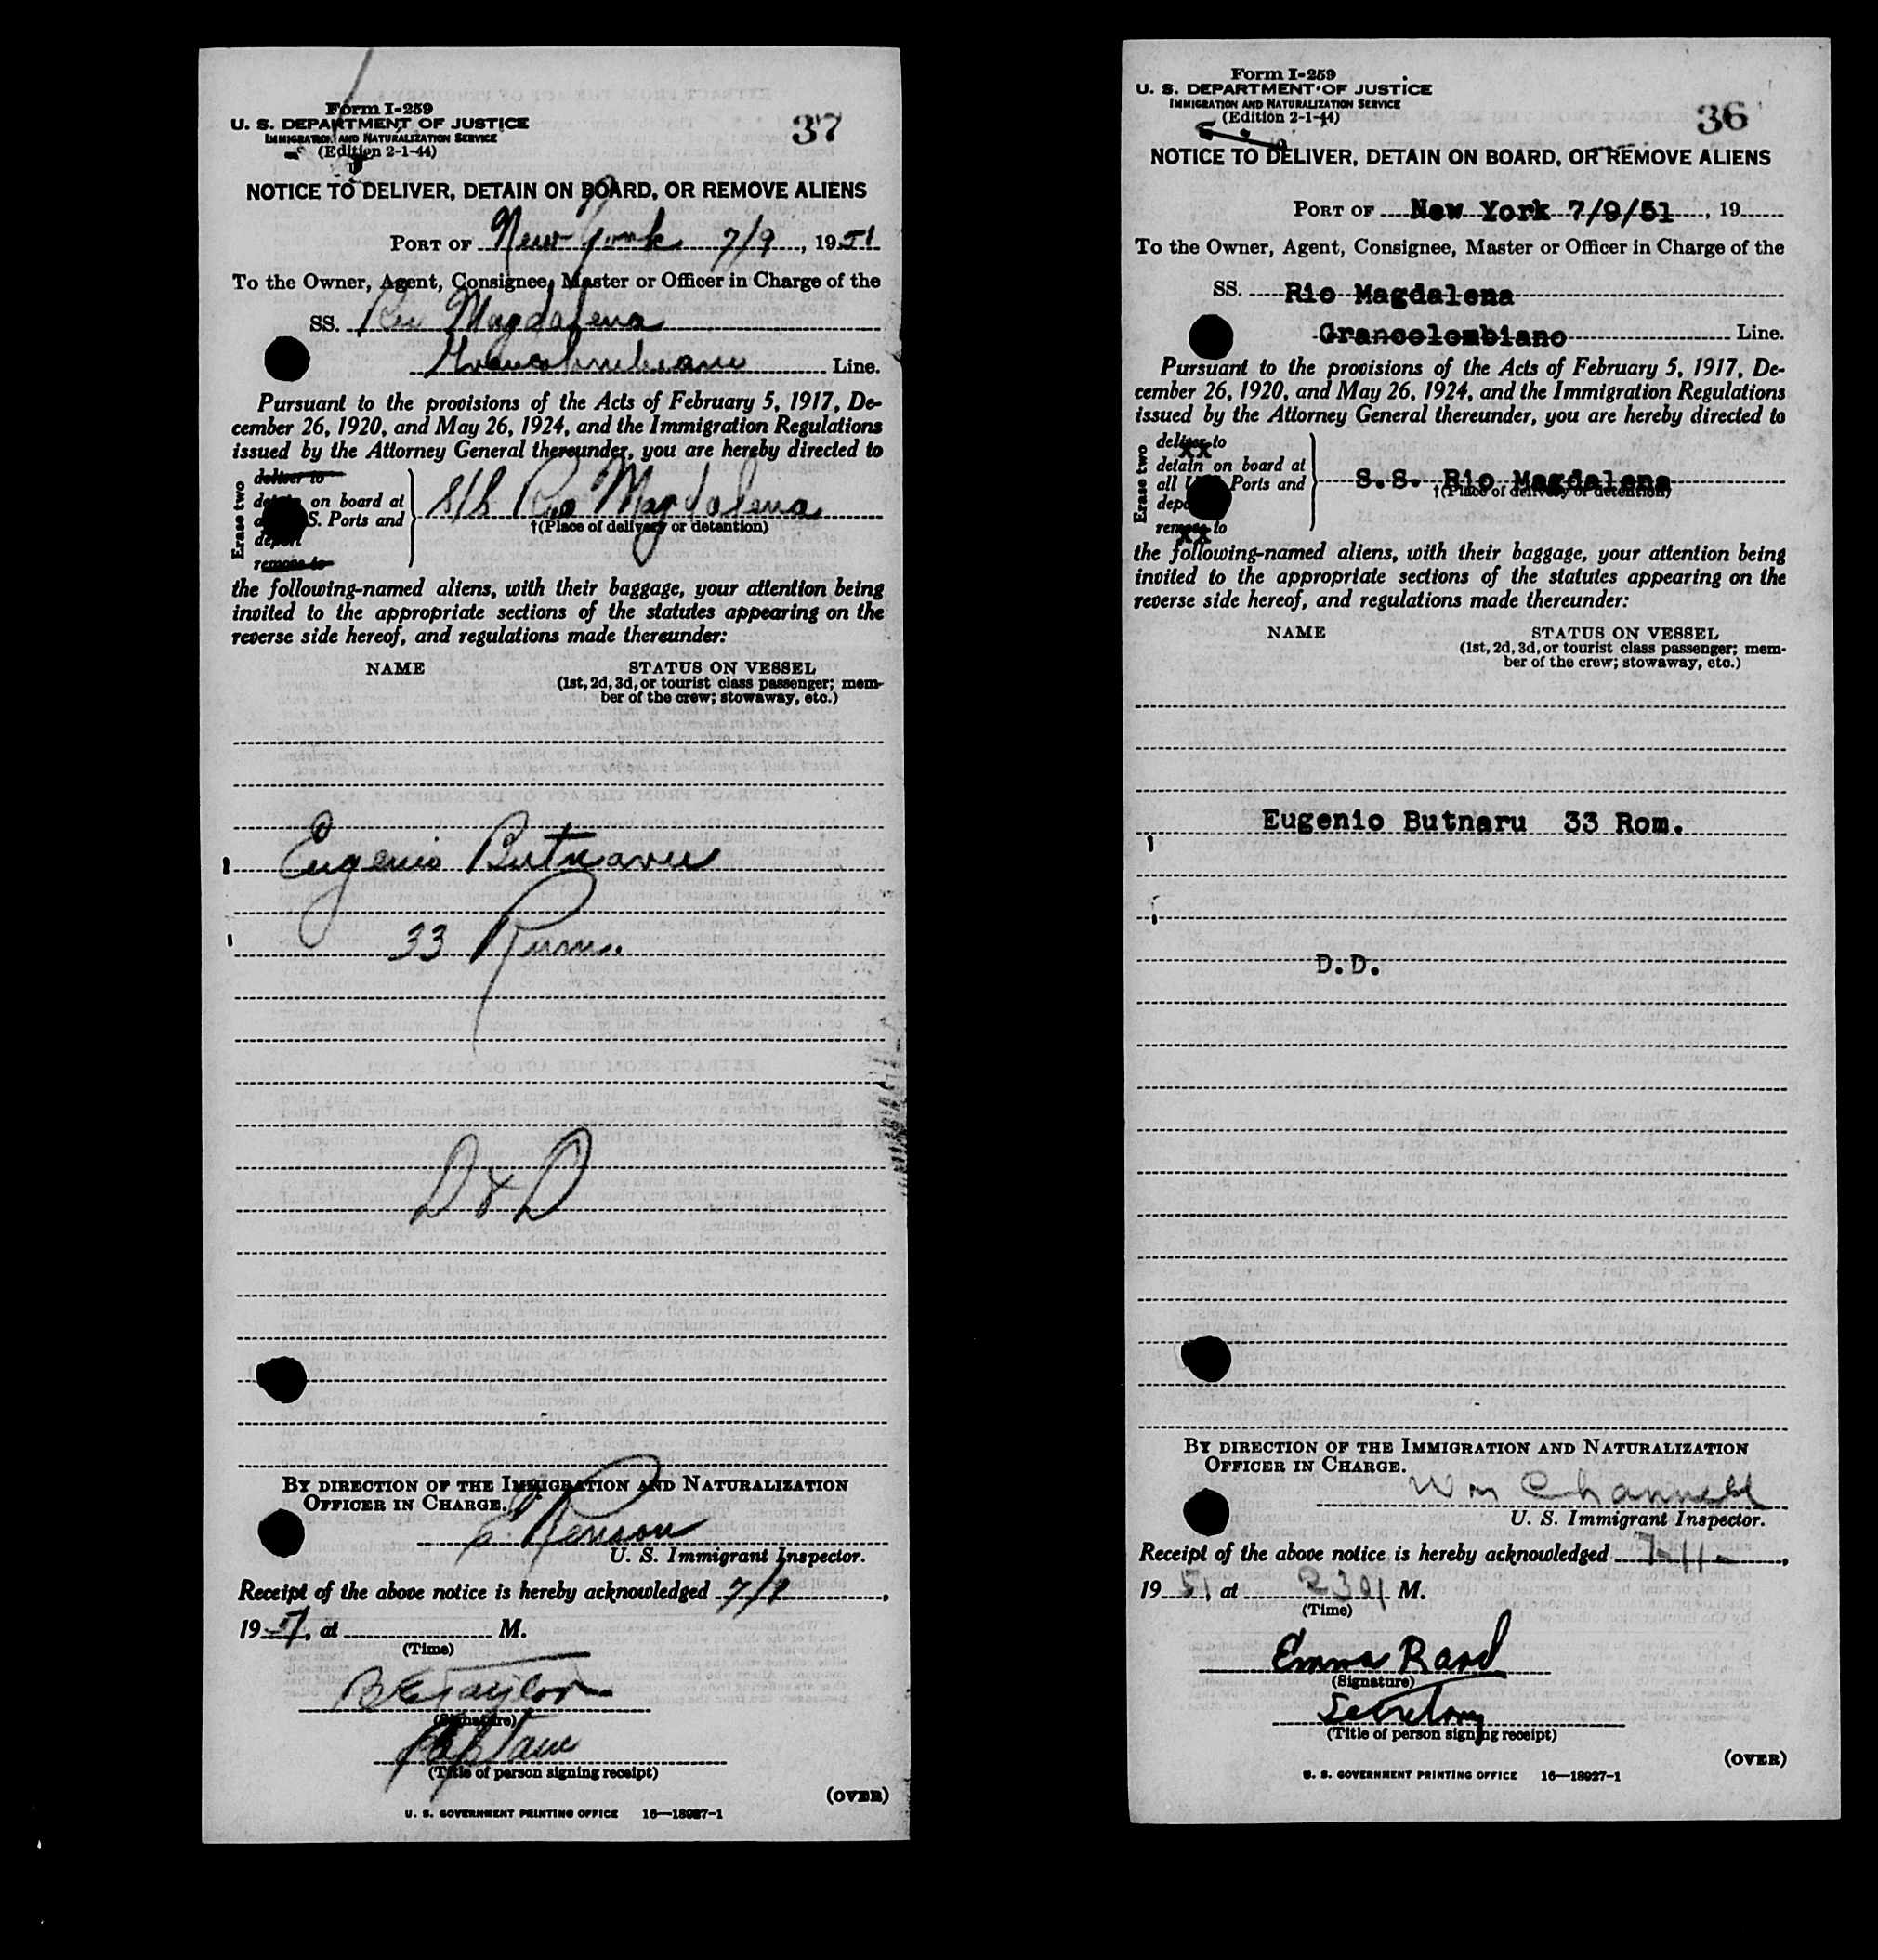 Form I-259
U. S. DEPARTMENT OF JUSTICE
IMMIGRATION AND NATURALIZATION SERVICE
(Edition 2-1-44)
37
NOTICE TO DELIVER, DETAIN ON BOARD, OR REMOVE ALIENS
PORT OF New York 7/9, 1951
To the Owner, Agent, Consignee, Master or Officer in Charge of the
SS. Rio Magdalena
Grancolombiano Line.
Pursuant to the provisions of the Acts of February 5, 1917, De-
cember 26, 1920, and May 26, 1924, and the Immigration Regulations
issued by the Attorney General thereunder, you are hereby directed to
Erase two
deliver to
detain on board at
S. Ports and
deport
remove to
S/S Rio Magdalena
†(Place of delivery or detention)
the following-named aliens, with their baggage, your attention being
invited to the appropriate sections of the statutes appearing on the
reverse side hereof, and regulations made thereunder:
NAME STATUS ON VESSEL
(1st, 2d, 3d, or tourist class passenger; mem-
ber of the crew; stowaway, etc.)
Eugenio Butnaru
33 Rum.
D & D
BY DIRECTION OF THE IMMIGRATION AND NATURALIZATION
OFFICER IN CHARGE.
U. S. Immigrant Inspector.
Receipt of the above notice is hereby acknowledged 7/9,
1951, at M.
(Time)
B E Taylor
(Signature)
Captain
(Title of person signing receipt)
(OVER)
U. S. GOVERNMENT PRINTING OFFICE 16—18927-1
Form I-259
U. S. DEPARTMENT OF JUSTICE
IMMIGRATION AND NATURALIZATION SERVICE
(Edition 2-1-44)
36
NOTICE TO DELIVER, DETAIN ON BOARD, OR REMOVE ALIENS
PORT OF New York 7/9/51, 19
To the Owner, Agent, Consignee, Master or Officer in Charge of the
SS. Rio Magdalena
Grancolombiano Line.
Pursuant to the provisions of the Acts of February 5, 1917, De-
cember 26, 1920, and May 26, 1924, and the Immigration Regulations
issued by the Attorney General thereunder, you are hereby directed to
Erase two
deliver to
xx
detain on board at
all Ports and
remove to
xx
S.S. Rio Magdalena
†(Place of delivery or detention)
the following-named aliens, with their baggage, your attention being
invited to the appropriate sections of the statutes appearing on the
reverse side hereof, and regulations made thereunder:
NAME STATUS ON VESSEL
(1st, 2d, 3d, or tourist class passenger; mem-
ber of the crew; stowaway, etc.)
Eugenio Butnaru 33 Rom.
D.D.
BY DIRECTION OF THE IMMIGRATION AND NATURALIZATION
OFFICER IN CHARGE.
Wm Channell
U. S. Immigrant Inspector.
Receipt of the above notice is hereby acknowledged 7-11-,
1951, at M.
(Time)
Emma Rand
(Signature)
Secretary
(Title of person signing receipt)
(OVER)
U. S. GOVERNMENT PRINTING OFFICE 16—18927-1